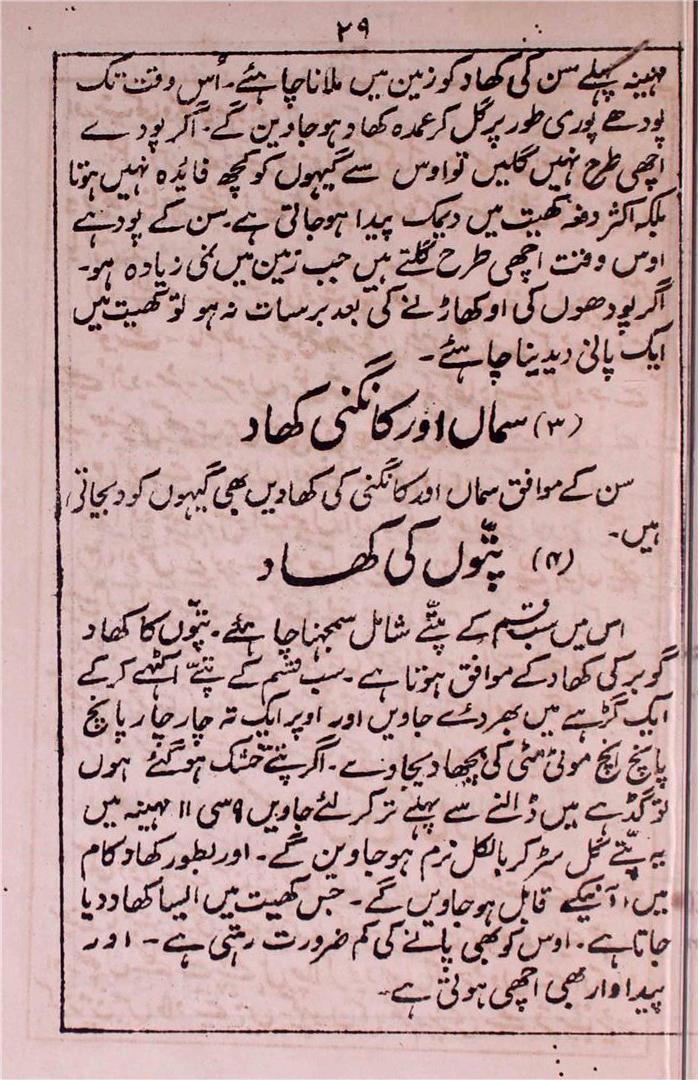 ۲۹
مہینہ پہلے سن کی کھاد کو زمین میں ملانا چاہئے۔ اُس وقت تک
پودھے پوری طور پر گل کر عمدہ کھاد ہو جاوین گے۔ اگر پودے
اچھی طرح نہیں گلیں تو اوس سے گیہوں کو کچھ فائدہ نہیں ہوتا
بلکہ اکثر دفعہ کھیت میں دیمک پیدا ہو جاتی ہے۔ سن کے پودہے
اوس وقت اچھی طرح گلتے ہیں جب زمین میں نمی زیادہ ہو۔
اگر پودھوں کی اوکھاڑنے کی بعد برسات نہ ہو تو کھیت میں
ایک پانی دیدینا چاہئے۔
(۳) سماں اور کانگنی کھاد
سن کے موافق سماں اور کانگنی کی کھادیں بھی گیہوں کو دیجاتی
ہیں۔
(۴) پتّوں کی کھاد
اس میں سب قسم کے پتّے شامل سمجہنا چاہئے۔ پتّوں کا کھاد
گوبر کی کھاد کے موافق ہوتا ہے۔ سب قسم کے پتّے اکٹہے کر کے
ایک گڑہے میں بھر دئے جاویں اور اوپر ایک تہ چار چار پانچ
پانچ انچ موٹی مٹی کی بچھا دیجاوے۔ اگر پتّے خشک ہو گئے ہوں
تو گڈہے میں ڈالنے سے پہلے تر کر لئے جاویں ۹ سی ۱۱ مہینہ میں
یہ پتّے گل سڑ کر بالکل نرم ہو جاوین گے۔ اور بطور کھاد کام
میں آنیکے قابل ہو جاویں گے۔ جس کھیت میں ایسا کھاد دیا
جاتا ہے۔ اوس کو بھی پانے کی کم ضرورت رہتی ہے۔ اور
پیداوار بھی اچھی ہوتی ہے۔